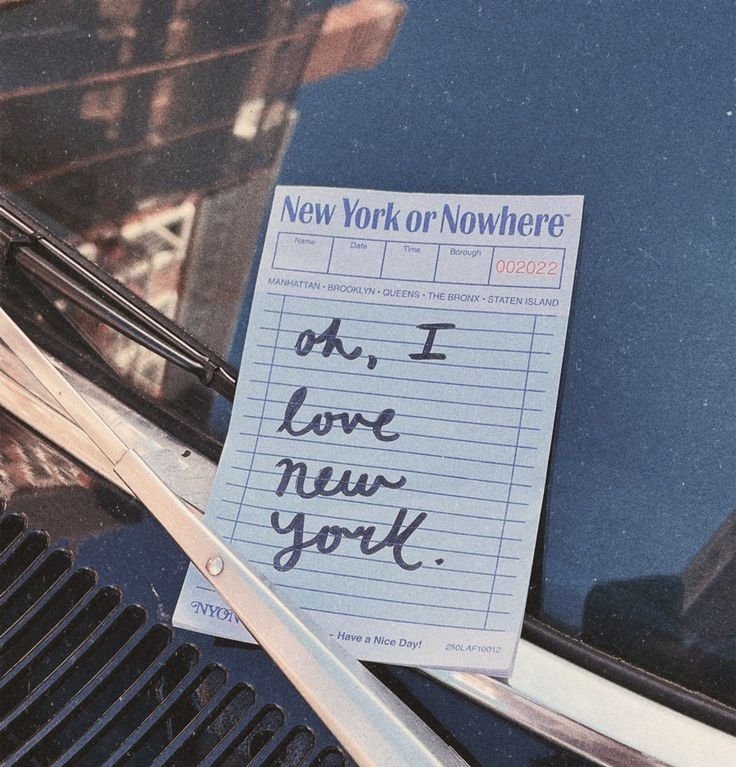 New York or Nowhere™
Name Date Time Borough 002022
MANHATTAN • BROOKLYN • QUEENS • THE BRONX • STATEN ISLAND
oh, I
love
new
york.
- Have a Nice Day! 250LAF10012